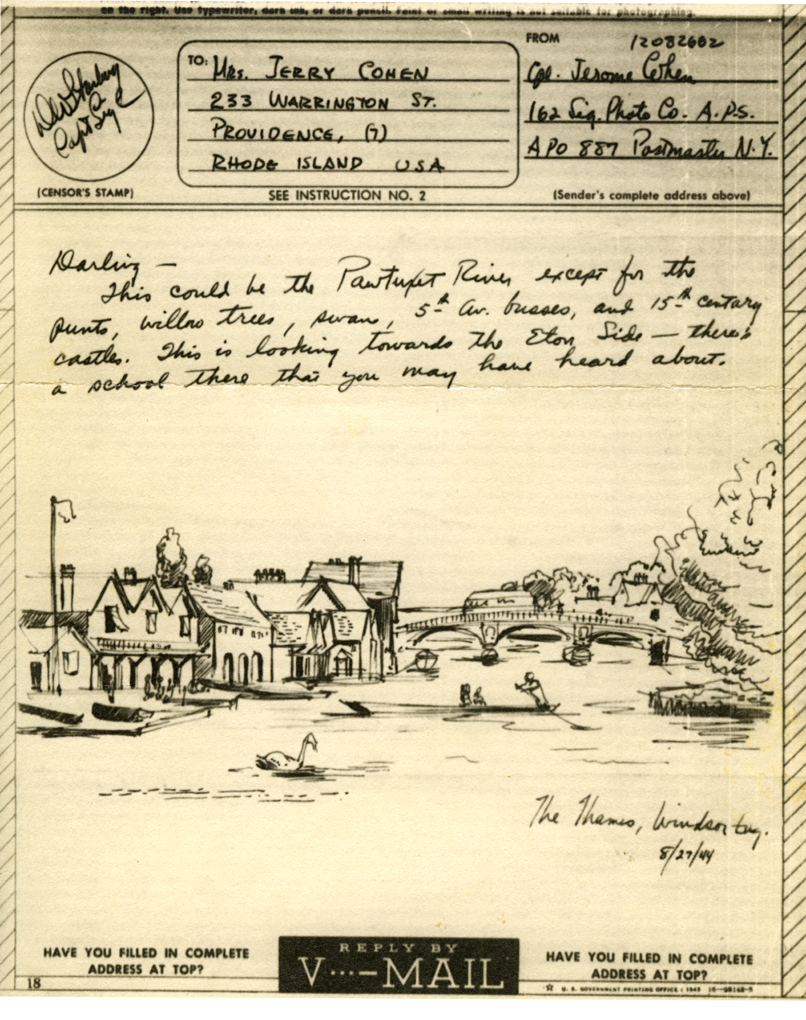 on the right. Use typewriter, dark ink, or dark pencil. Faint or small writing is not suitable for photographing.
FROM 12082662
TO: MRS. JERRY COHEN
233 WARRINGTON ST.
PROVIDENCE, (7)
RHODE ISLAND USA
Cpl. Jerome Cohen
162 Sig. Photo Co. A.P.S.
APO 887 Postmaster N.Y.
Capt Sig C
(CENSOR'S STAMP)
SEE INSTRUCTION NO. 2
(Sender's complete address above)
Darling —
This could be the Pawtuxet River except for the
punts, willow trees, swans, 5th Av. busses, and 15th century
castles. This is looking towards the Eton Side — there's
a school there that you may have heard about.
The Thames, Windsor Eng.
8/27/44
HAVE YOU FILLED IN COMPLETE
ADDRESS AT TOP?
REPLY BY
V···—MAIL
HAVE YOU FILLED IN COMPLETE
ADDRESS AT TOP?
18
☆ U. S. GOVERNMENT PRINTING OFFICE : 1943